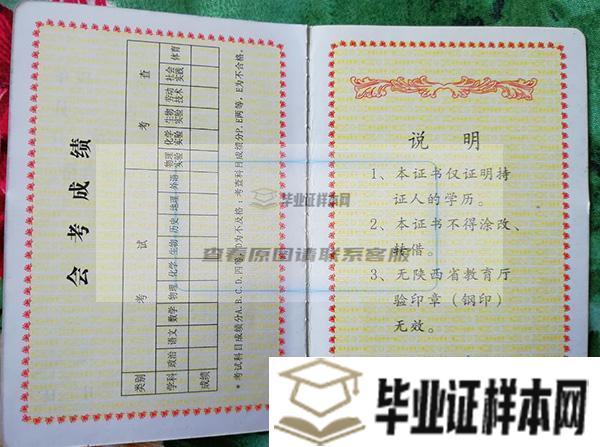 会考成绩
类别 考试 考查
学科 政治 语文 数学 物理 化学 生物 历史 地理 外语 物理实验 化学实验 生物实验 劳动技术 社会实践 体育
成绩
*考试科目成绩分A.B.C.D.四等,D为不合格;考查科目成绩分P、E两等,E为不合格。
说 明
1、本证书仅证明持
证人的学历。
2、本证书不得涂改、
转借。
3、无陕西省教育厅
验印章(钢印)
无效。
毕业证样本网
查看原图请联系客服
毕业证样本网